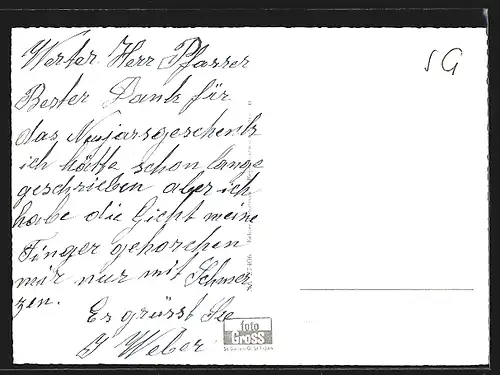 Werter Herr Pfarrer
Bester Dank für
das Neujarsgeschenk
ich hätte schon lange
geschrieben aber ich
habe die Gicht meine
Finger gehorchen
mir nur mit Schmer
zen.
Es grüsst Sie
J Weber
SG
foto
GROSS
St. Gallen